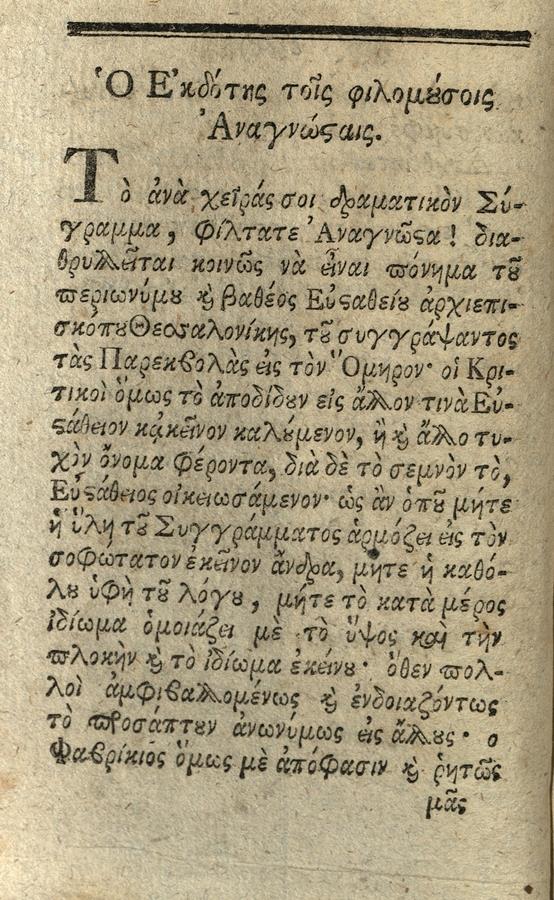 Ὁ Ἐκδότης τοῖς φιλομούσοις
Ἀναγνώσταις.
Τὸ ἀνὰ χεῖράς σοι δραματικὸν Σύ-
γραμμα, φίλτατε Ἀναγνῶστα! δια-
θρυλλεῖται κοινῶς νὰ εἶναι πόνημα τοῦ
περιωνύμου καὶ βαθέος Εὐσταθείου ἀρχιεπι-
σκόπου Θεσσαλονίκης, τοῦ συγγράψαντος
τὰς Παρεκβολὰς εἰς τὸν Ὅμηρον· οἱ Κρι-
τικοὶ ὅμως τὸ ἀποδίδουν εἰς ἄλλον τινὰ Εὐ-
στάθειον κᾀκεῖνον καλούμενον, ἢ καὶ ἄλλο τυ-
χὸν ὄνομα φέροντα, διὰ δὲ τὸ σεμνὸν τὸ,
Εὐστάθειος οἰκειωσάμενον· ὡς ἂν ὁποῦ μήτε
ἡ ὕλη τοῦ Συγγράμματος ἁρμόζει εἰς τὸν
σοφώτατον ἐκεῖνον ἄνδρα, μήτε ἡ καθό-
λου ὑφὴ τοῦ λόγου, μήτε τὸ κατὰ μέρος
ἰδίωμα ὁμοιάζει μὲ τὸ ὕψος καὶ τὴν
πλοκὴν καὶ τὸ ἰδίωμα ἐκείνου· ὅθεν πολ-
λοὶ ἀμφιβαλλομένως καὶ ἐνδοιαζόντως
τὸ προσάπτουν ἀνωνύμως εἰς ἄλλους· ο
Φαβρίκιος ὅμως μὲ ἀπόφασιν καὶ ῥητῶς
μᾶς